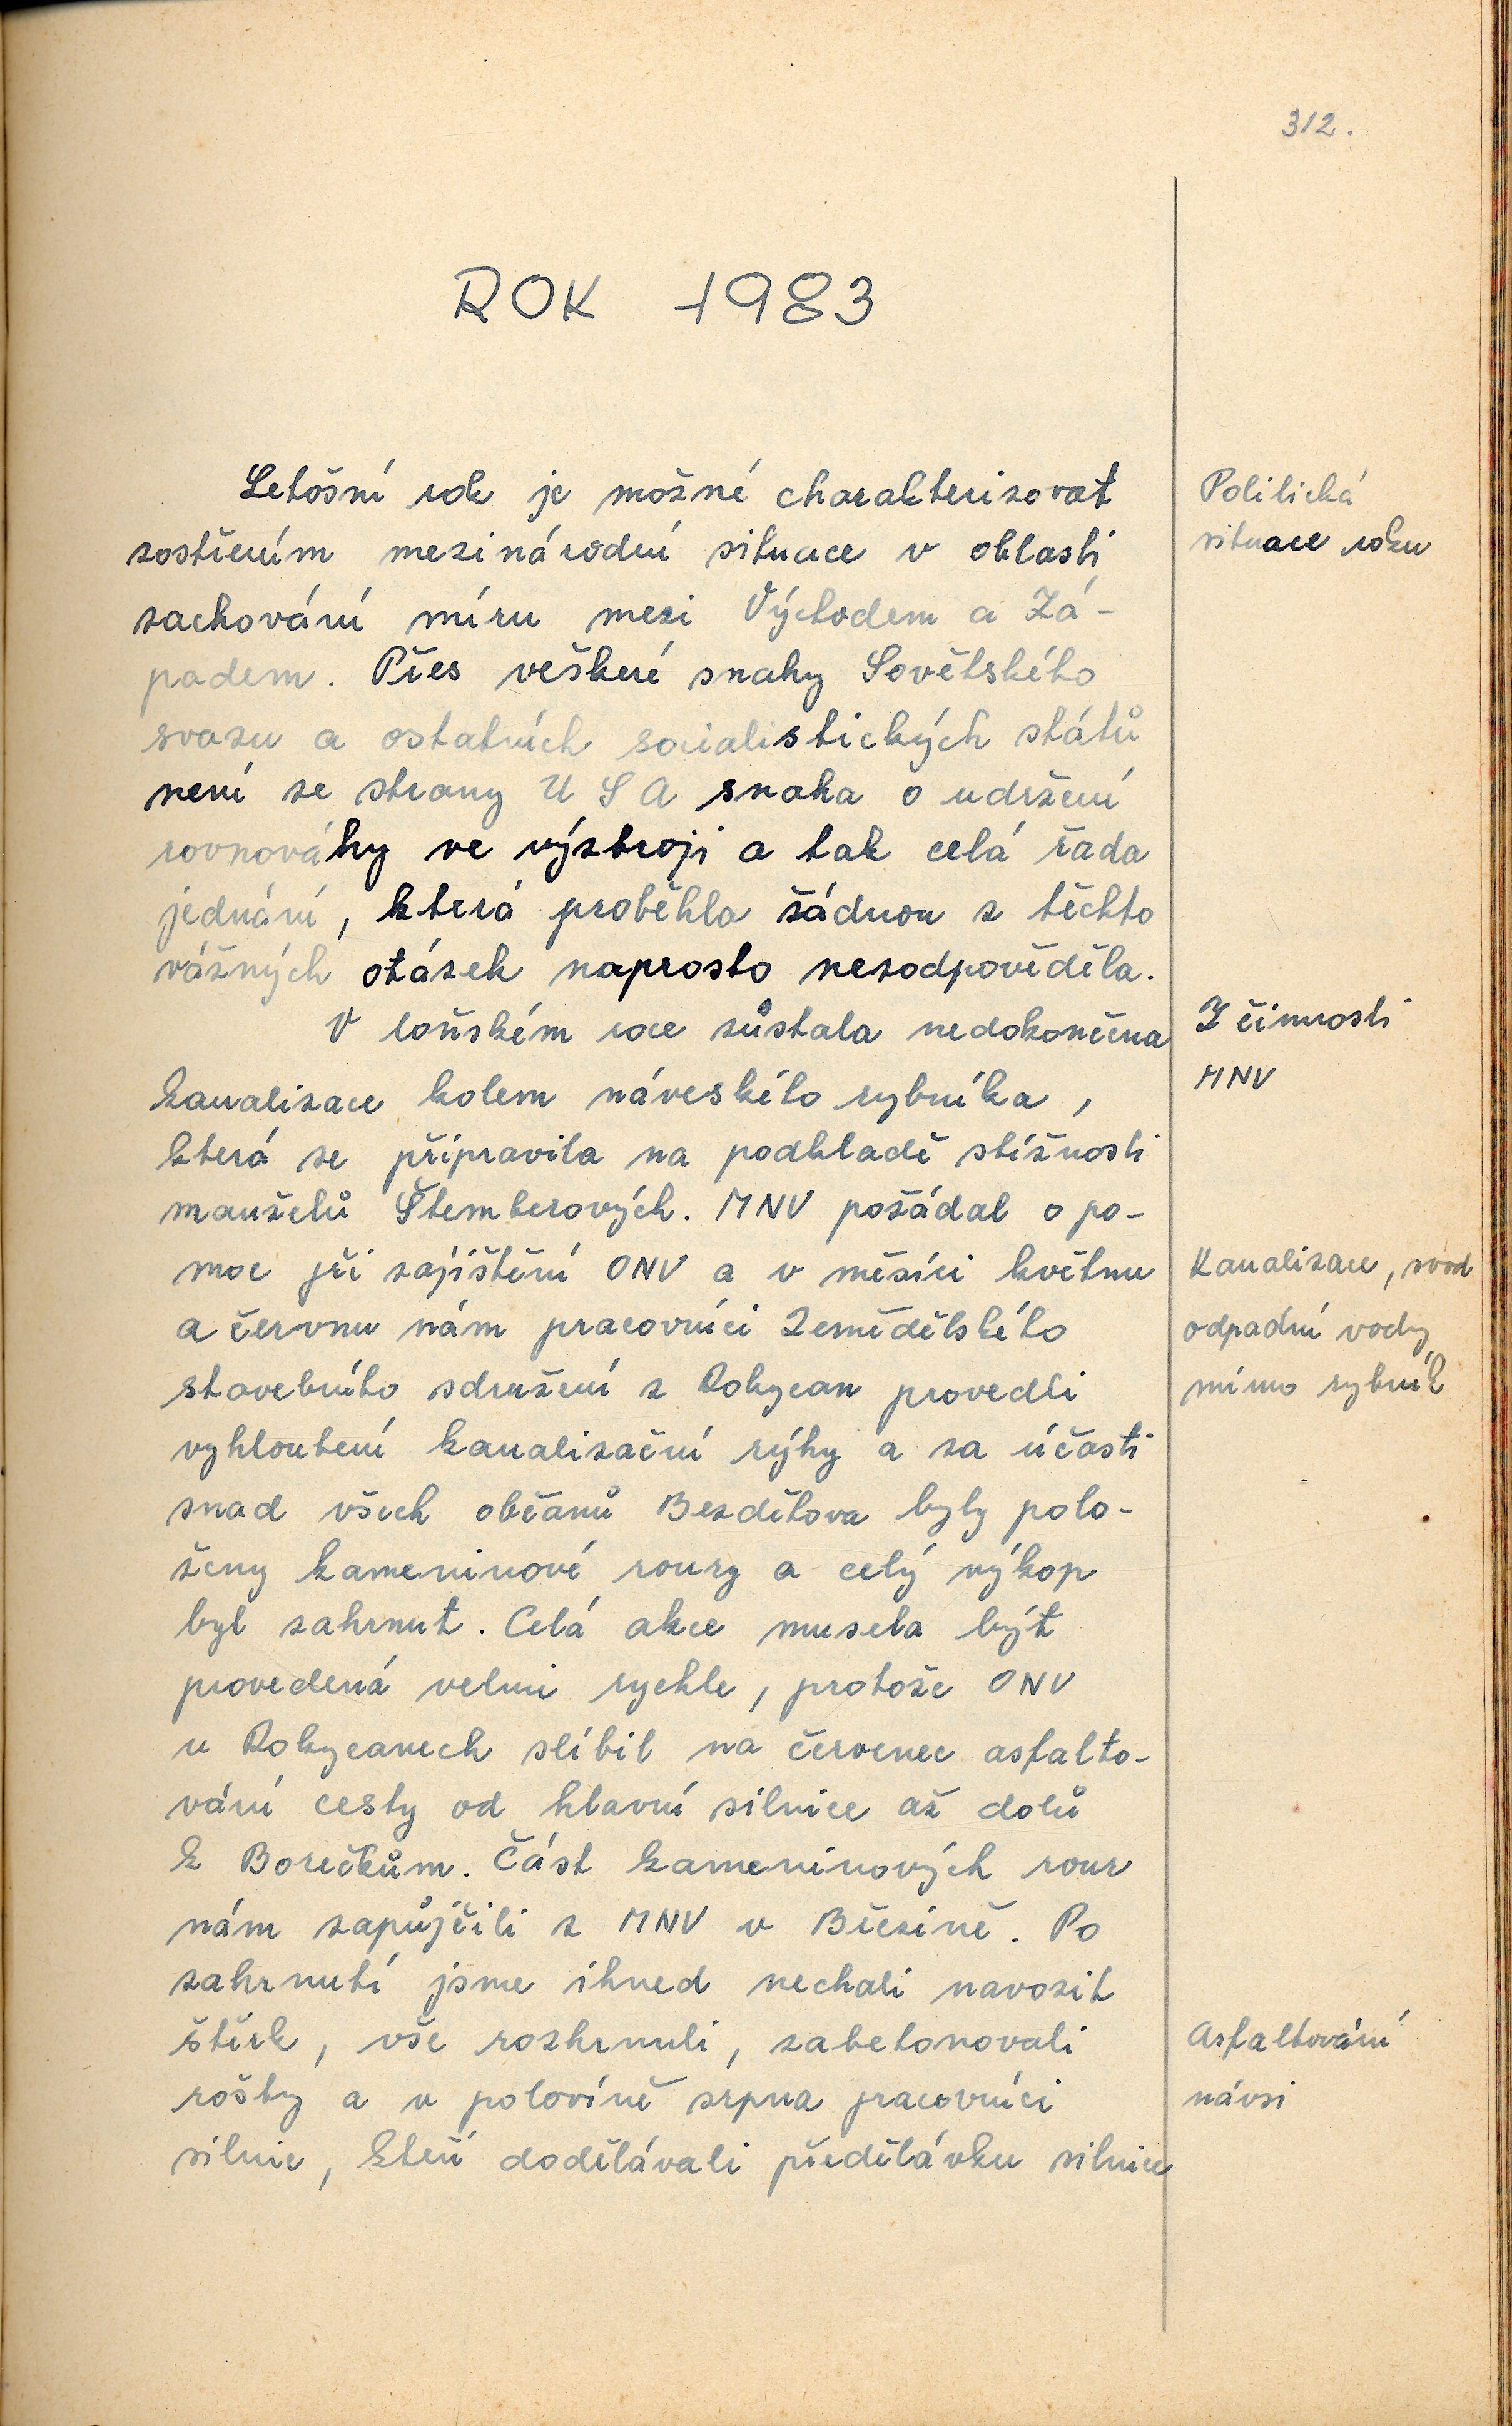 312.
ROK 1983
Letošní rok je možné charakterizovat
Politická
zostřením mezinárodní situace v oblasti
situace roku
zachování míru mezi Východem a Zá-
padem. Přes veškeré snahy Sovětského
svazu a ostatních socialistických států
není ze strany U S A snaha o udržení
rovnováhy ve výzbroji a tak celá řada
jednání, která proběhla žádnou z těchto
vážných otázek naprosto nezodpověděla.
V loňském roce zůstala nedokončena
Z činnosti
kanalizace kolem náveského rybníka,
MNV
která se připravila na podkladě stížnosti
manželů Štemberových. MNV požádal o po-
moc při zajištění ONV a v měsíci květnu
Kanalizace, svod
a červnu nám pracovníci Zemědělského
odpadní vody
stavebního sdružení z Rokycan provedli
mimo rybník
vyhloubení kanalizační rýhy a za účasti
snad všech občanů Bezděkova byly polo-
ženy kameninové roury a celý výkop
byl zahrnut. Celá akce musela být
provedená velmi rychle, protože ONV
v Rokycanech slíbil na červenec asfalto-
vání cesty od hlavní silnice až dolů
k Borečkům. Část kameninových rour
nám zapůjčili z MNV v Březině. Po
zahrnutí jsme ihned nechali navozit
štěrk, vše rozhrnuli, zabetonovali
Asfaltování
rošty a v polovině srpna pracovníci
návsi
silnic, kteří dodělávali předělávku silnice